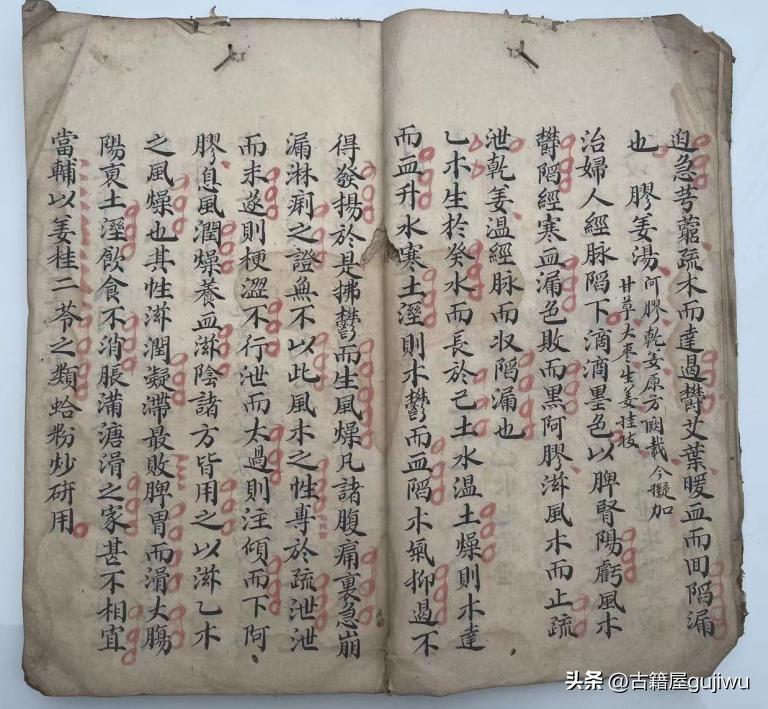 迫急芎藭疏木而達遏欝艾葉暖血而囬陷漏
也 膠姜湯 阿膠乾姜原方闕載今擬加
甘草大枣生姜桂枝
治婦人經脉陷下滴滴墨色以脾腎陽虧風木
欝陷經寒血漏色敗而黑阿膠滋風木而止疏
泄乾姜温經脉而収陷漏也
乙木生於癸水而長於己土水温土燥則木達
而血升水寒土溼則木欝而血陷木氣抑遏不
得發揚於是拂欝而生風燥凡諸腹痛裏急崩
漏淋痢之證無不以此風木之性專於疏泄泄
而未遂則梗澀不行泄而太過則注傾而下阿
膠息風潤燥養血滋陰諸方皆用之以滋乙木
之風燥也其性滋潤凝滯最敗脾胃而滑大膓
陽衰土溼飲食不消脹滿溏滑之家甚不相宜
當輔以姜桂二苓之類蛤粉炒研用
头条 @古籍屋gujiwu